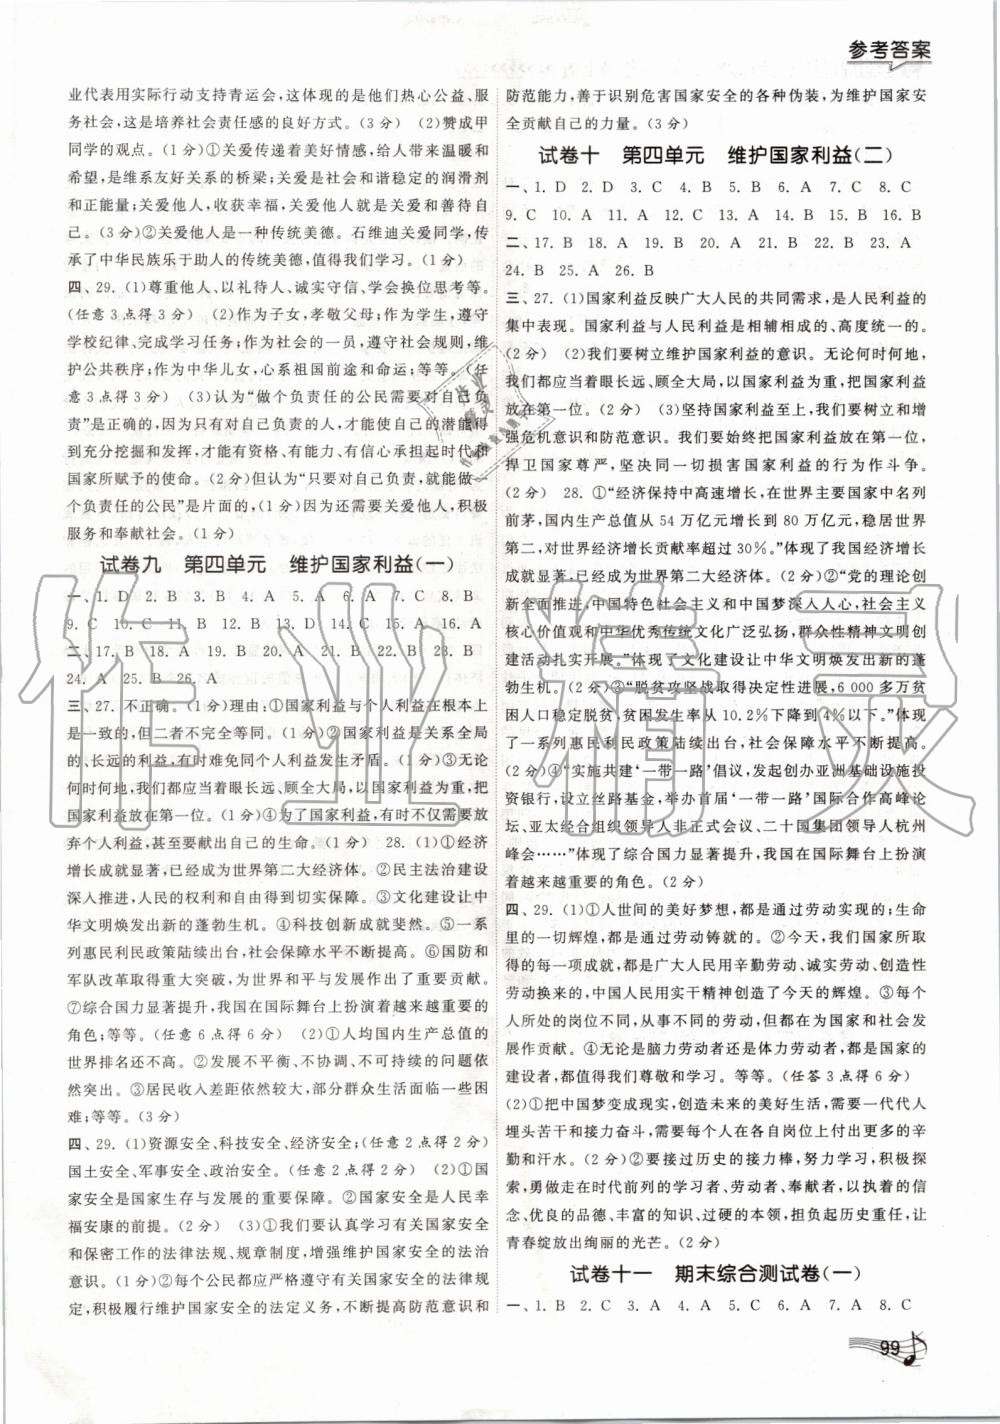 参考答案
业代表用实际行动支持青运会，这体现的是他们热心公益、服
务社会，是培养社会责任感的良好方式。（3分） （2）赞成甲
同学的观点。（1分）①关爱传递着美好情感，给人带来温暖和
希望，是维系友好关系的桥梁；关爱是社会和谐稳定的润滑剂
和正能量；关爱他人，收获幸福，关爱他人就是关爱和善待自
己。（3分）②关爱他人是一种传统美德。石维迪关爱同学，传
承了中华民族乐于助人的传统美德，值得我们学习。（1分）
四、29.（1）尊重他人、以礼待人、诚实守信、学会换位思考等。
（任意3点得3分） （2）作为子女，孝敬父母；作为学生，遵守
学校纪律、完成学习任务；作为社会的一员，遵守社会规则，维
护公共秩序；作为中华儿女，心系祖国前途和命运；等等。（任
意3点得3分） （3）认为“做个负责任的公民就要对自己负
责”是正确的，因为只有对自己负责的人，才能使自己的潜能得
到充分挖掘和发挥，才能有资格、有能力、有信心承担起时代和
国家所赋予的使命。（2分）但认为“只要对自己负责，就能做一
个负责任的公民”是片面的，（1分）因为还需要关爱他人，积极
服务和奉献社会。（1分）
试卷九 第四单元 维护国家利益（一）
一、1. D 2. B 3. B 4. A 5. A 6. A 7. C 8. B
9. C 10. C 11. B 12. B 13. D 14. C 15. A 16. A
二、17. B 18. A 19. B 20. A 21. B 22. B 23. B
24. A 25. B 26. A
三、27. 不正确。（1分）理由：①国家利益与个人利益在根本上
是一致的，但二者不完全等同。（1分）②国家利益是关系全局
的、长远的利益，有时难免同个人利益发生矛盾。（1分）③无论
何时何地，我们都应当着眼长远、顾全大局，以国家利益为重，把
国家利益放在第一位。（1分）④为了国家利益，有时不仅需要放
弃个人利益，甚至要献出自己的生命。（1分） 28.（1）①经济
发展成就显著，已经成为世界第二大经济体。②民主法治建设
深入推进，人民的权利和自由得到切实保障。③文化建设让中
华文明焕发出新的蓬勃生机。④科技创新成就斐然。⑤一系
列惠民利民政策陆续出台，社会保障水平不断提高。⑥国防和
军队改革取得重大突破，为世界和平与发展作出了重大贡献。
⑦综合国力显著提升，我国在国际舞台上扮演着越来越重要的
角色；等等。（任意6点得6分） （2）①人均国内生产总值的
世界排名还不高。②发展不平衡、不协调、不可持续的问题依
然突出。③居民收入差距依然较大，部分群众生活面临一些困
难；等等。（3分）
四、29.（1）资源安全、科技安全、经济安全；（任意2点得2分）
国土安全、军事安全、政治安全。（任意2点得2分） （2）①国
家安全是国家生存与发展的重要保障。②国家安全是人民幸
福安康的前提。（2分） （3）①我们要认真学习有关国家安全
和保密工作的法律法规、规章制度，增强维护国家安全的法治
意识。（1分）②每个公民都应严格遵守有关国家安全的法律规
定，积极履行维护国家安全的法定义务，不断提高防范意识和
防范能力，善于识别危害国家安全的各种伪装，为维护国家安
全贡献自己的力量。（3分）
试卷十 第四单元 维护国家利益（二）
一、1. D 2. D 3. C 4. B 5. B 6. A 7. C 8. C
9. C 10. A 11. A 12. C 13. A 14. B 15. B 16. B
二、17. B 18. A 19. B 20. A 21. A 22. B 23. A
24. B 25. A 26. B
三、27.（1）国家利益反映广大人民的共同需求，是人民利益的
集中表现。国家利益与人民利益是相辅相成的、高度统一的。
（2分） （2）我们要树立维护国家利益的意识。无论何时何地，
我们都应当着眼长远、顾全大局，以国家利益为重，把国家利益
放在第一位。（2分） （3）坚持国家利益至上，我们要树立和增
强危机意识和防范意识。我们要始终把国家利益放在第一位，
捍卫国家尊严，坚决同一切损害国家利益的行为作斗争。
（2分） 28. ①“经济保持中高速增长，在世界主要国家中名列
前茅，国内生产总值从54万亿元增长到80万亿元，稳居世界
第二，对世界经济增长贡献率超过30%。”体现了我国经济发展
成就显著，已经成为世界第二大经济体。（2分）②“党的理论创
新全面推进，中国特色社会主义和中国梦深入人心，社会主义
核心价值观和中华优秀传统文化广泛弘扬，群众性精神文明创
建活动扎实开展。”体现了文化建设让中华文明焕发出新的蓬
勃生机。（2分）③“脱贫攻坚战取得决定性进展，6 000多万贫
困人口稳定脱贫，贫困发生率从10.2%下降到4%以下。”体现
了一系列惠民利民政策陆续出台，社会保障水平不断提高。
（2分）④“实施共建‘一带一路’倡议，发起创办亚洲基础设施投
资银行，设立丝路基金，举办首届‘一带一路’国际合作高峰论
坛、亚太经合组织领导人非正式会议、二十国集团领导人杭州
峰会……”体现了综合国力显著提升，我国在国际舞台上扮演
着越来越重要的角色。（2分）
四、29.（1）①人世间的美好梦想，都是通过劳动实现的；生命
里的一切辉煌，都是通过劳动铸就的。②今天，我们国家所取
得的每一项成就，都是广大人民用辛勤劳动、诚实劳动、创造性
劳动换来的，中国人民用实干精神创造了今天的辉煌。③每个
人所处的岗位不同，从事不同的劳动，但都在为国家和社会发
展作贡献。④无论是脑力劳动者还是体力劳动者，都是国家的
建设者，都值得我们尊敬和学习。等等。（任答3点得6分）
（2）①把中国梦变成现实，创造未来的美好生活，需要一代代人
埋头苦干和接力奋斗，需要每个人在各自岗位上付出更多的辛
勤和汗水。（2分）②要接过历史的接力棒，努力学习，积极探
索，勇做走在时代前列的学习者、劳动者、奉献者，以执着的信
念、优良的品德、丰富的知识、过硬的本领，担负起历史重任，让
青春绽放出绚丽的光芒。（2分）
试卷十一 期末综合测试卷（一）
一、1. B 2. C 3. A 4. A 5. C 6. A 7. A 8. C
99
作业精灵